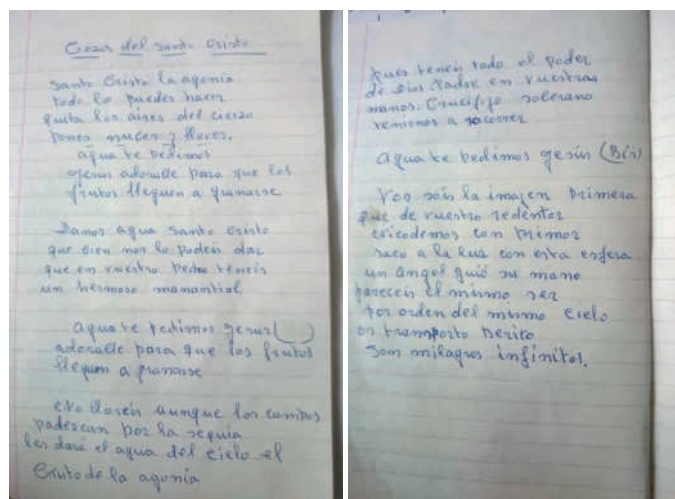 Gozos del Santo Cristo
Santo Cristo la agonia
todo lo puedes hacer
quita los aires del cierzo
pones nuces y llover.
agua te pedimos
gesus adorable para que los
frutos lleguen a granarse
Danos agua santo cristo
que bien nos lo podeis dar
que em vuestro pecho teneis
um hermoso manantial
agua te pedimos gesus ( )
adorable para que los frutos
lleguen a granarse
No lloreis aunque los campos
padescan por la sequia
les dara el agua del cielo el
Cristo de la agonia
pues teneis todo el poder
de Dios Padre en vuestras
manos. Crucifijo soberano
venienos a socorrer
agua te pedimos gesus (Bis)
Vos sois la imagen primera
que de vuestro redentor
nicodemos con primor
saco a la luz con esta esfera
un angel guió su mano
pareceis el mismo ser
por orden del mismo cielo
os transporto Berito
Som milagros infinitos.